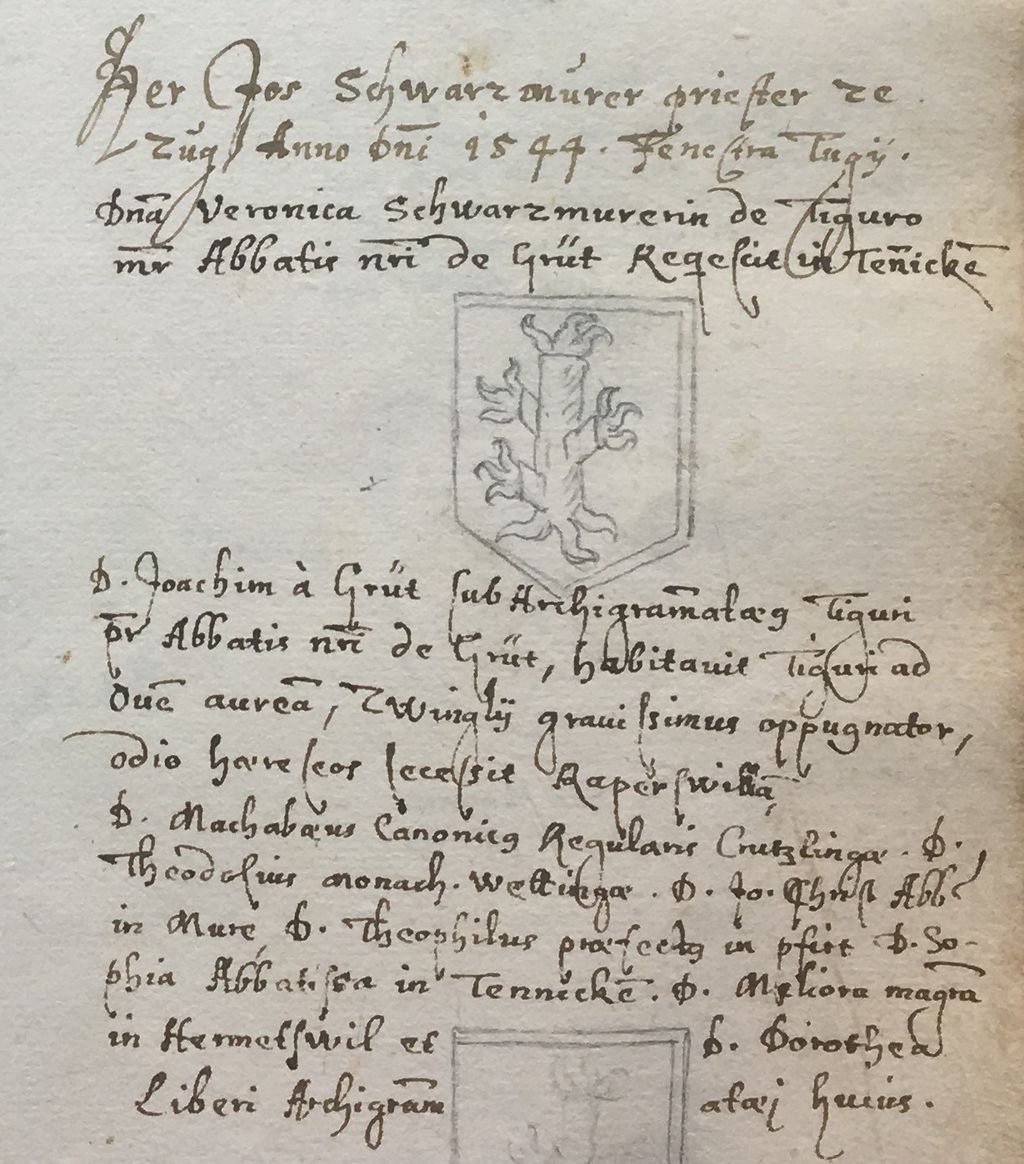 Her Jos Schwarzmurer priester ze
Zug Anno Dn̄i 1544. Fenestra Tugij.
Dn̄a Veronica Schwarzmurerin de Tiguro
mr̄ Abbatis nr̄i de Grüt Reqescit in Ten̄ickē
D. Joachim à Grüt subArchigram̄atæ9 Tiguri
pr̄ Abbatis nr̄i de Grüt, habitauit Tiguri ad
Ouē aureā, Zwinglij grauissimus oppugnator,
odio hæreseos secessit Raperswillā
D. Machabæus Canonic9 Regularis Crutzlingæ. D.
Theodosius monach. Wettingæ. D. Jo. Christ Abb
in Mure, D. Theophilus præfect9 in pfirt D. So-
phia Abbatissa in Tennickē. D. Meliora magrā
in Hermetswil et D. Dorothea
Liberi Archigram̄ atæi huius.